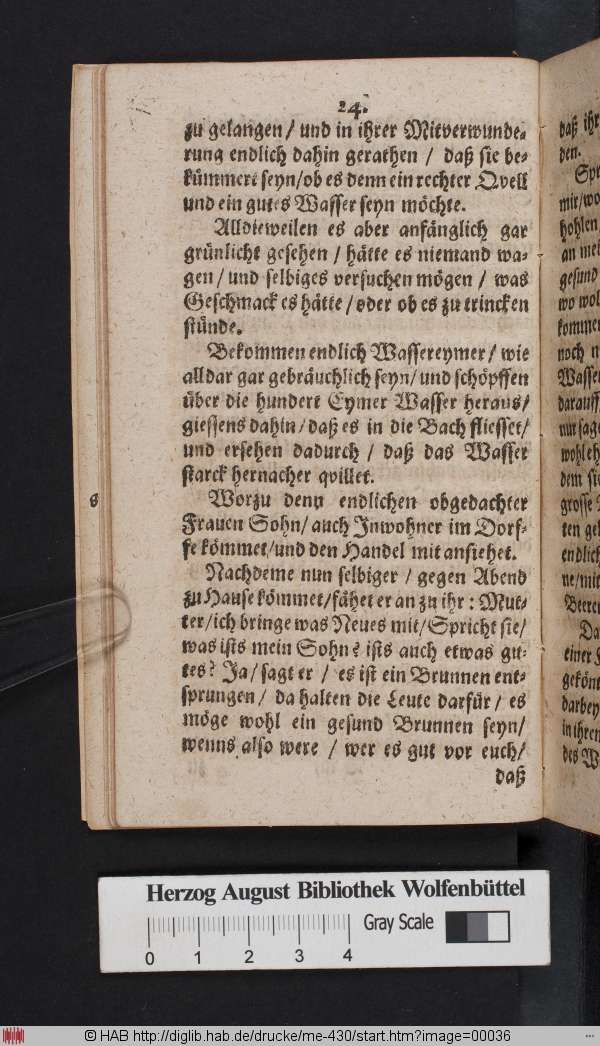 24.
zu gelangen / und in ihrer Mitverwunde-
rung endlich dahin gerathen / daß sie be-
kümmert seyn/ob es denn ein rechter Qvell
und ein gutes Wasser seyn möchte.
Alldieweilen es aber anfänglich gar
grünlicht gesehen / hätte es niemand wa-
gen / und selbiges versuchen mögen / was
Geschmack es hätte / oder ob es zu trincken
stünde.
Bekommen endlich Wassereymer / wie
alldar gar gebräuchlich seyn/ und schöpffen
über die hundert Eymer Wasser heraus/
giessens dahin / daß es in die Bach fliesset/
und ersehen dadurch / daß das Wasser
starck hernacher qvillet.
8
Worzu denn endlichen obgedachter
Frauen Sohn/ auch Inwohner im Dorf-
fe kömmet/und den Handel mit ansiehet.
Nachdeme nun selbiger / gegen Abend
zu Hause kömmet/fähet er an zu ihr : Mut-
ter/ich bringe was Neues mit/ Spricht sie/
was ists mein Sohn? ists auch etwas gu-
tes? Ja/ sagt er / es ist ein Brunnen ent-
sprungen / da halten die Leute darfür / es
möge wohl ein gesund Brunnen seyn/
wenns also were / wer es gut vor euch/
daß
daß ihr
den.
Spr
mir/wo
hohlen
an mei
gesund
wo wol
kommen
noch n
Wasser
darauff
nur sage
wohl eh
dem sie
grosse
ten gel
endlich
ne/mit
Beeren
Da
einer
gekönt
darbey
in ihren
des W
Herzog August Bibliothek Wolfenbüttel
Gray Scale
0 1 2 3 4
© HAB http://diglib.hab.de/drucke/me-430/start.htm?image=00036